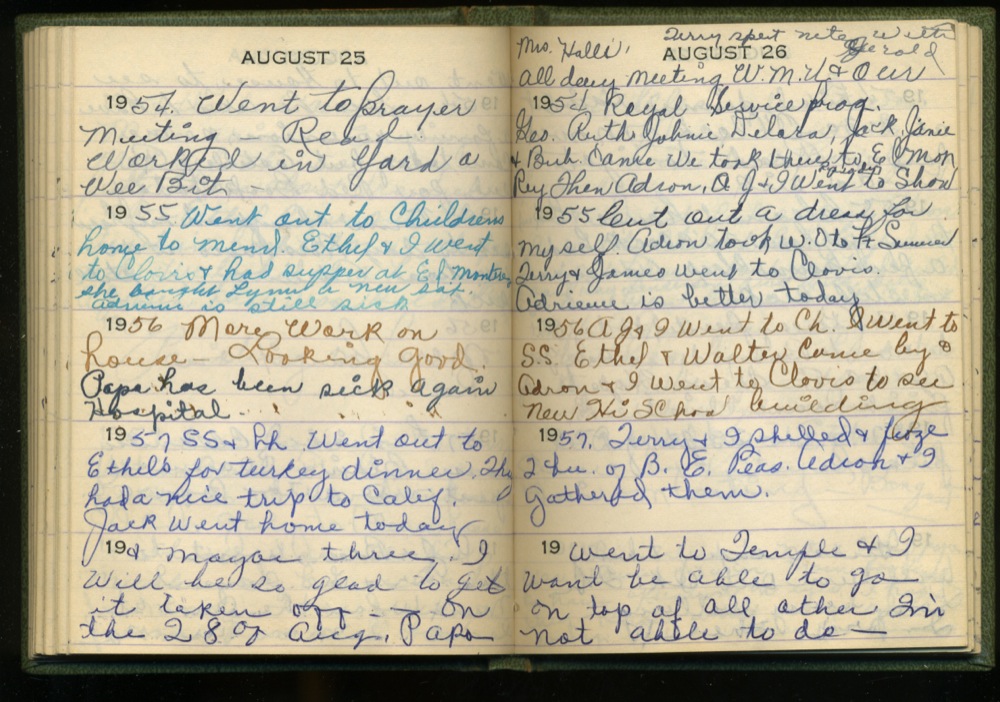 AUGUST 25
1954. Went to prayer
Meeting — Read.
Worked in Yard a
Wee Bit. —
1955 Went out to Childrens
home to mend. Ethel & I went
to Clovis & had supper at El Monterey
she bought Lynn a new sat.
Adrienne is still sick
1956 More Work on
house — Looking Good.
Papa has been sick again
Hospital
1957 SS & Ch. Went out to
Ethels for turkey dinner. They
had a nice trip to Calif.
Jack Went home today
19 & Maybe three. I
Will be so glad to get
it taken off — on
the 28 of Aug. Papa
Terry spent nite with
Mrs. Halls, Jerold
AUGUST 26
All day meeting W.M.U & Our
1954 Royal Service prog.
Geo. Ruth Johnie Delora, Jack, Janie
& Buh. Came We took them to El Mon
Rey Then Adron, A J & I Went to Show
1955 Cut out a dress for
my self. Adron took W.O to Ft Sumner
Terry & James went to Clovis.
Adrienne is better today
1956 A J & I Went to Ch. I Went to
S.S. Ethel & Walter Came by &
Adron & I Went to Clovis to see
new Hi School building
1957. Terry & I shelled & froze
2 bu. of B. E. Peas. Adron & I
Gathered them.
19 Went to Temple & I
Wont be able to go
on top of all other I'm
not able to do —